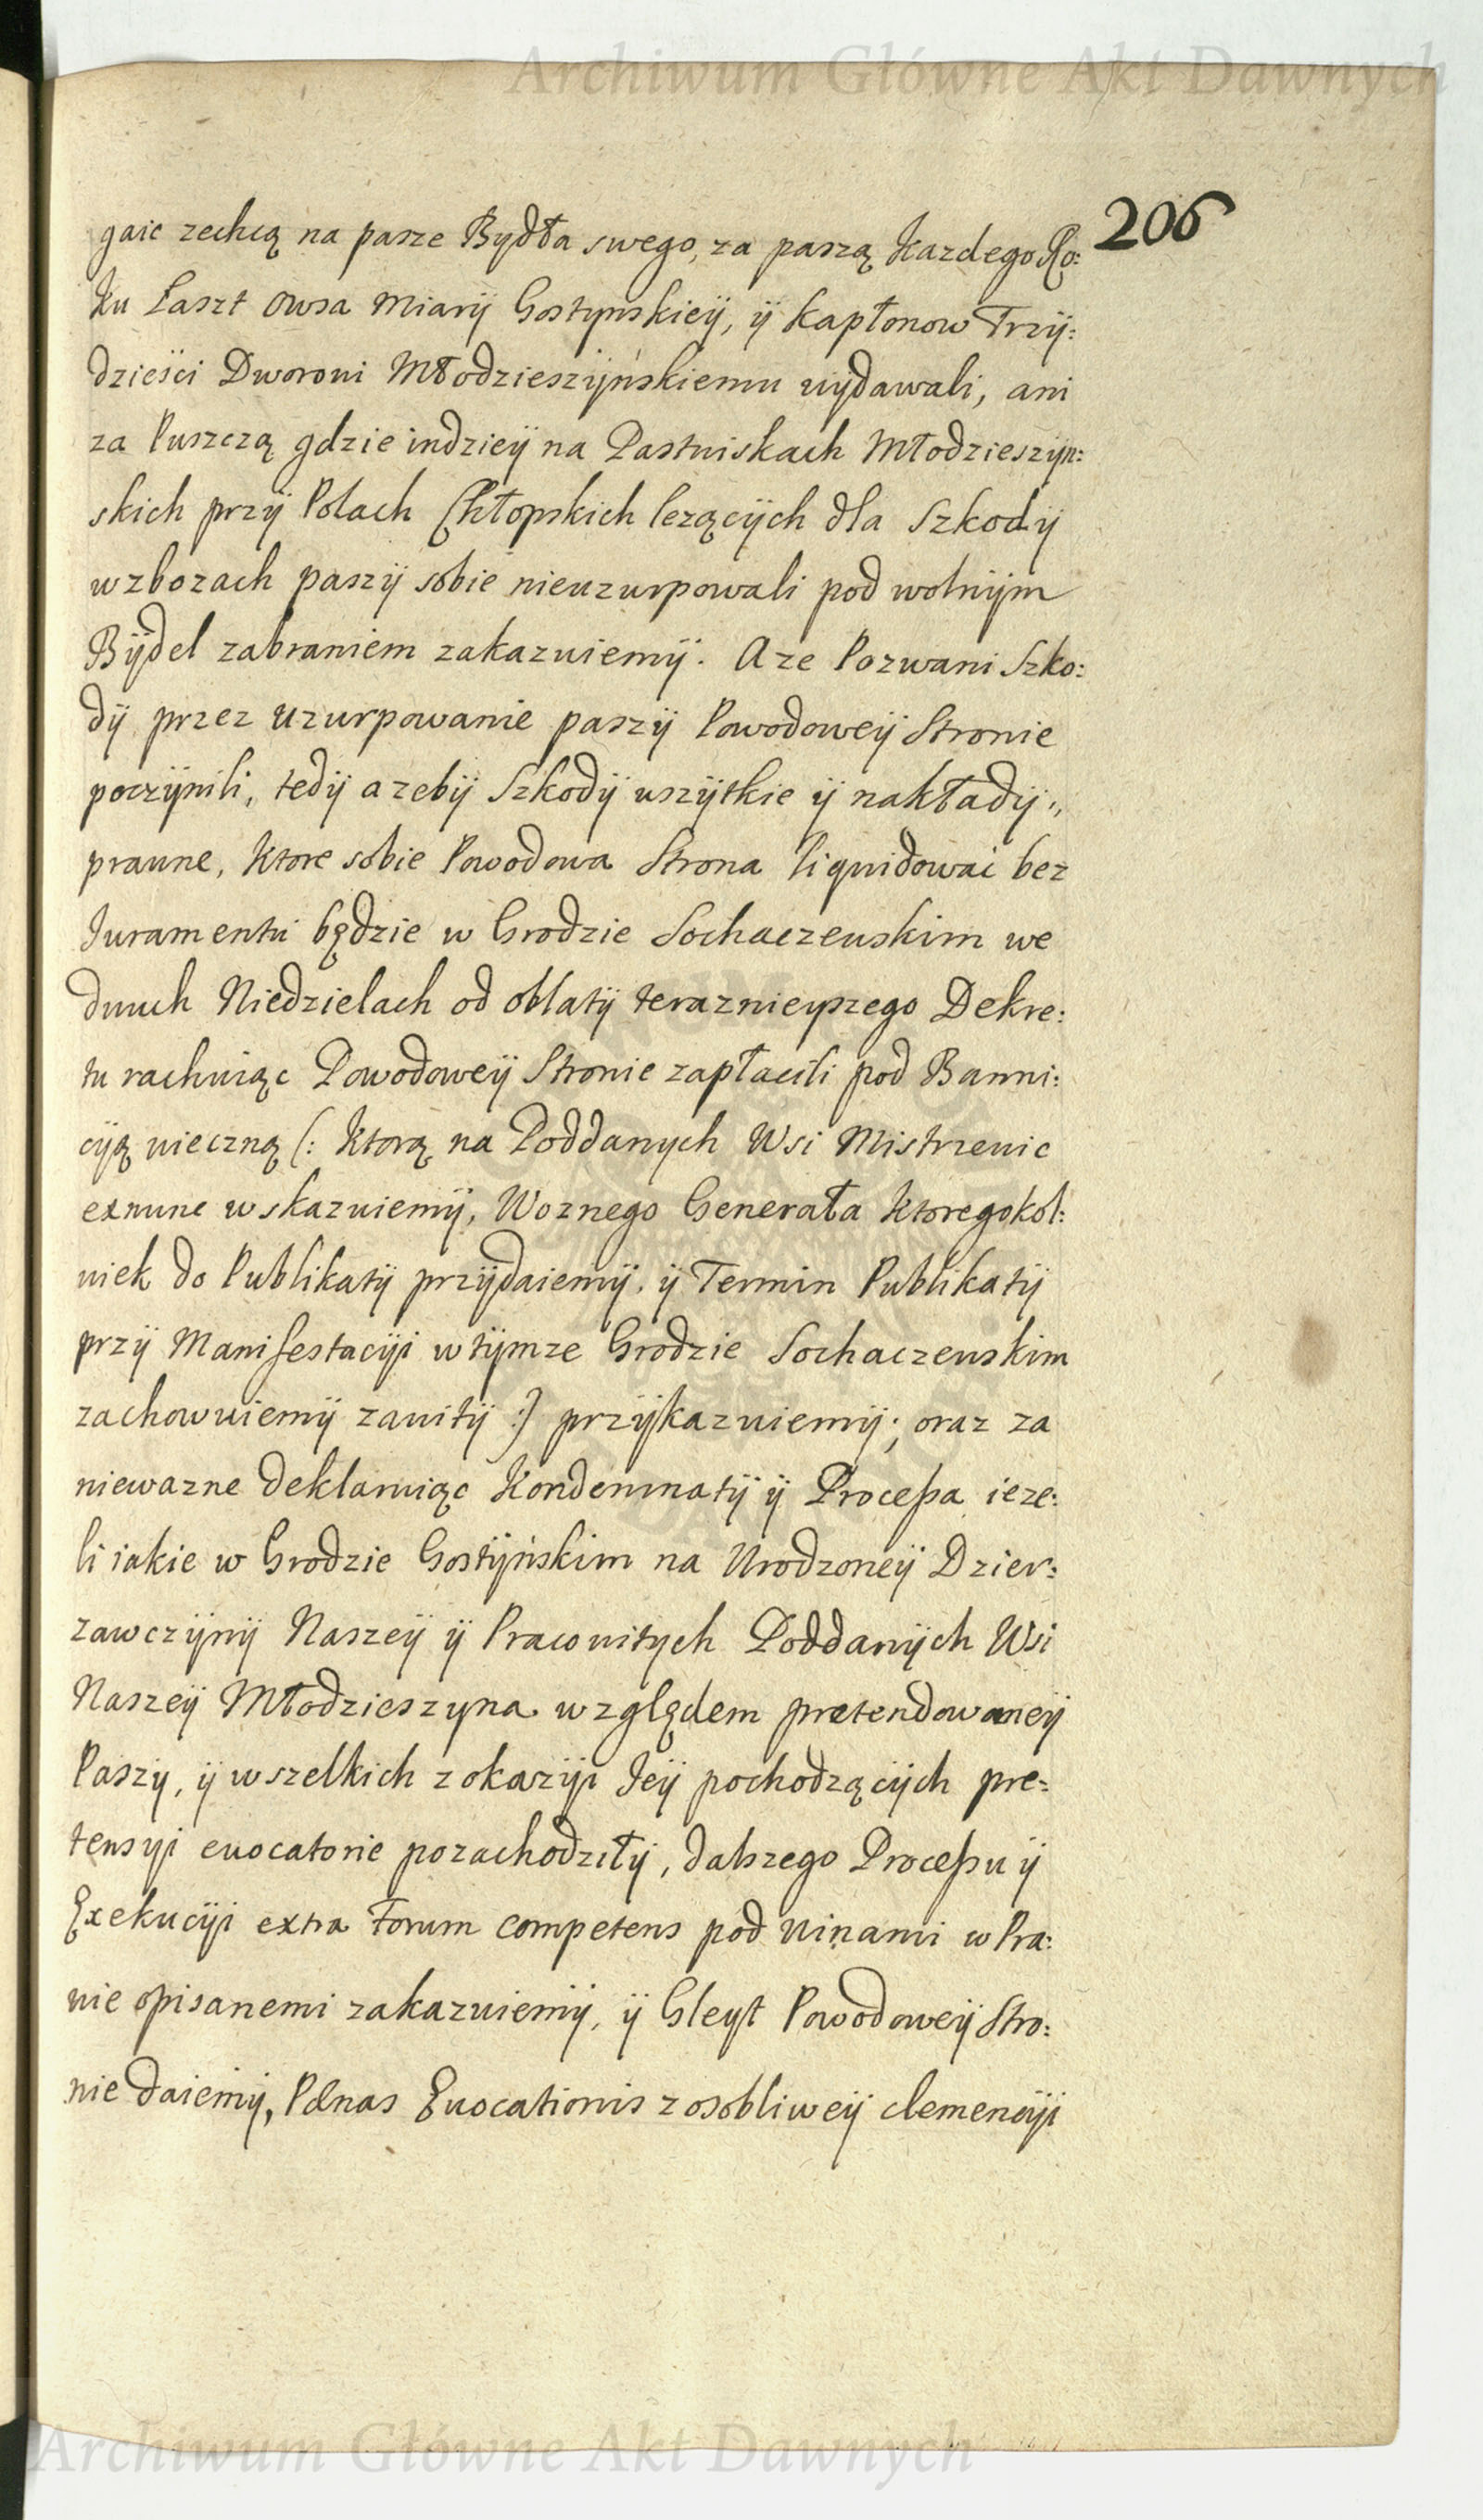 Archiwum Główne Akt Dawnych
206
gaić zechcą na pasze Bydła swego, za paszą Kazdego Ro:
ku Łaszt Owsa Miarÿ Gostynskieÿ, ÿ Kapłonow Trzÿ:
dzieści Dworowi Młodzieszÿńskiemu wÿdawali, ani
za Puszczą gdzie indzieÿ na Pastwiskach Młodzieszÿn:
skich przÿ Polach Chłopskich lezącÿch dla Szkodÿ
w zbozach paszÿ sobie nieuzurpowali pod wolnÿm
Bÿdeł zabraniem zakazuiemÿ. A ze Pozwani Szko:
dÿ przez uzurpowanie paszÿ Powodoweÿ Stronie
poczÿnili, tedÿ azebÿ Szkodÿ wszÿtkie ÿ nakładÿ,,
prawne, Ktore sobie Powodowa Strona liquidować bez
Juramentu będzie w Grodzie Sochaczewskim we
dwuch Niedzielach od oblatÿ teraznieÿszego Dekre:
tu rachuiąc Powodoweÿ Stronie zapłacili pod Banni:
cÿą wieczną (: Ktorą na Poddanych Wsi Mistrzewic
exnunc wskazuiemÿ, Woznego Generała Ktoregokol:
wiek do Publikatÿ przÿdaiemÿ, ÿ Termin Publikatÿ
przÿ Manifestacÿi w tÿmze Grodzie Sochaczewskim
zachowuiemÿ zawitÿ :) przÿkazuiemÿ; oraz za
niewazne deklaruiąc Kondemnatÿ ÿ Processa ieze:
li iakie w Grodzie Gostÿńskim na Urodzoneÿ Dzier:
zawczÿnÿ Naszeÿ ÿ Pracowitych Poddanÿch Wsi
Naszeÿ Młodzieszyna względem pretendowaneÿ
Paszy, ÿ wszelkich z okazÿi Jeÿ pochodzącÿch pre:
tensyi evocatorie pozachodziłÿ, dalszego Processu ÿ
Exekucÿi extra Forum competens pod winami w Pra:
wie opisanemi zakazuiemÿ, ÿ Gleyt Powodoweÿ Stro:
nie daiemÿ, Pænas Evocationis z osobliweÿ clemencÿi
Archiwum Główne Akt Dawnych